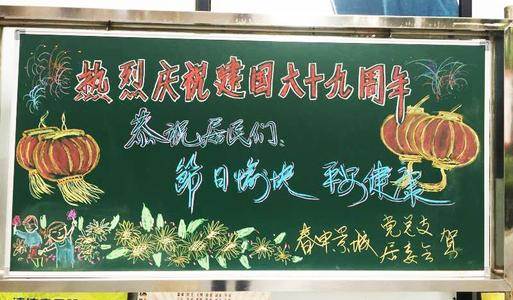 热烈庆祝建国六十九周年
恭祝居民们、
節日愉快 平安健康
春申景城 党总支
居委会 贺